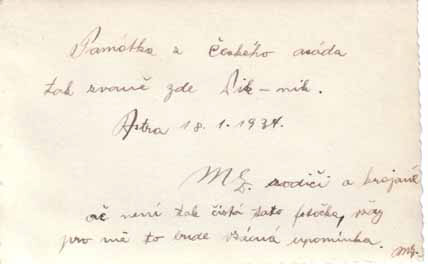 Památka z českého asáda
tak zvaně zde Pik-nik.
Astra 18.1.1934.
MG. rodiči a krajané
ač není tak čistá tato fotočka, vžy
pro mě to bude vzácná upomínka.
MG.